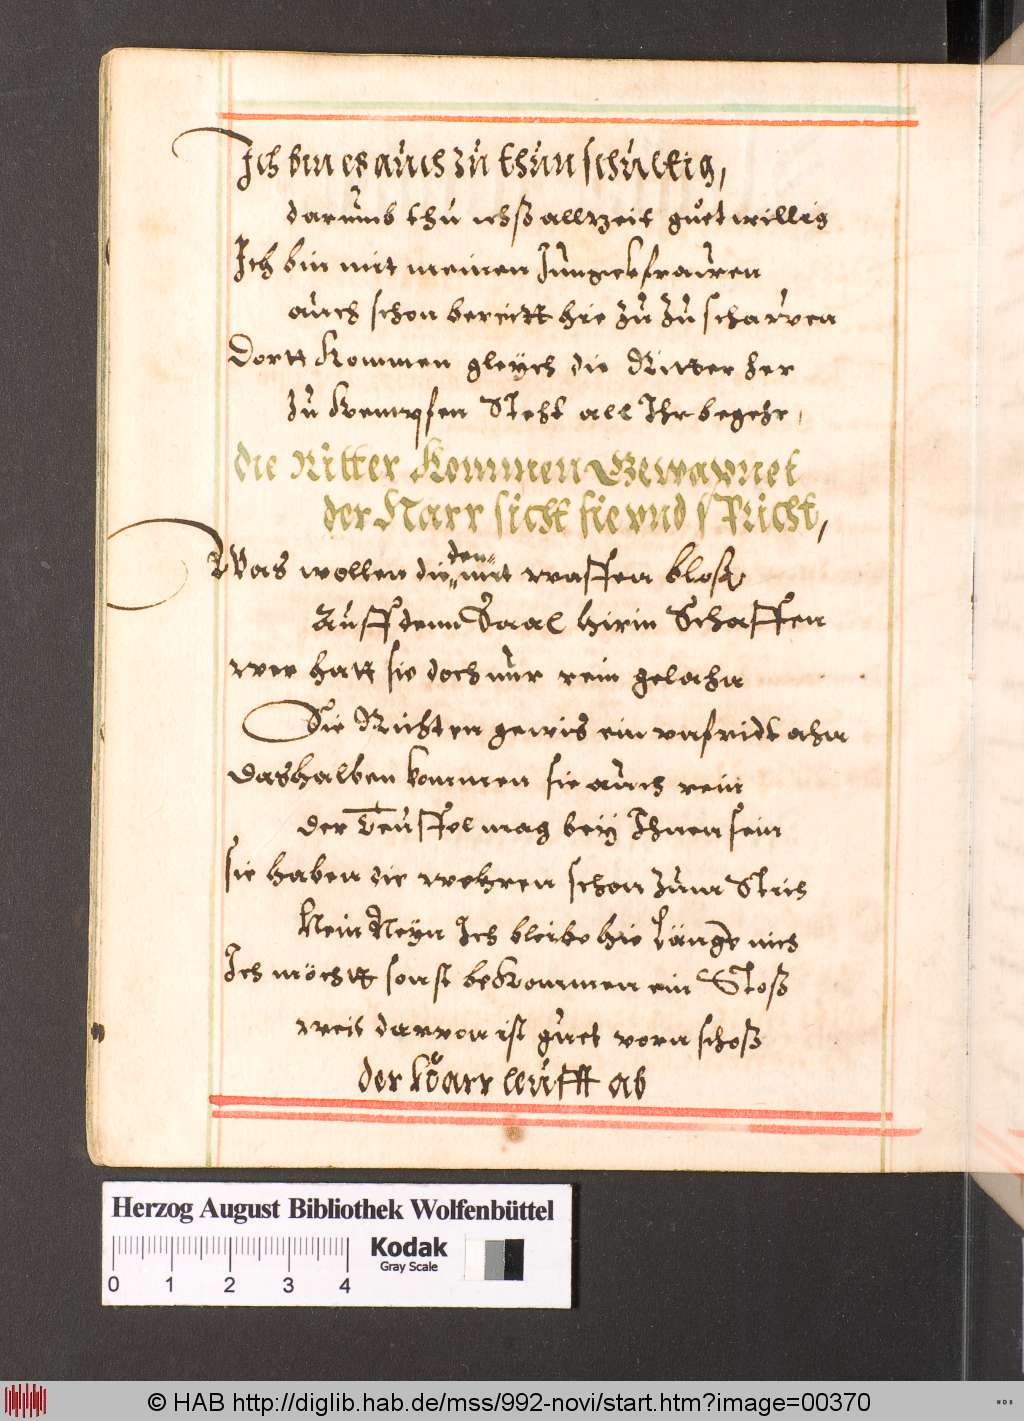 Ich bin es auch zu thun schultig,
darumb thu ichß allzeit guet willig
Ich bin mit meinen Jungekfrawen
auch schon bereitt hie zu zu schawen
Dortt Kommen gleych die Ritter her
zu Kempfen Steht all Ihr begehr,
die Ritter Kommen Gewapnet
der Narr sicht sie vnd sPricht,
Was wollen die den mit waffen blos
Auff dem Saal hirin Schaffen
wer hatt sie doch nur rein gelahn
Sie Richten gewis ein vnfridt ahn
dashalben kommen sie auch rein
der Teuffel mag bey Ihnen sein
sie haben die wehren schon zum Stich
Nein Neyn Ich bleibe hie lange nich
Ich möchtt sonst beKommen ein Stoß
weit darvon ist guet vorn schoß
der Narr leufft ab
Herzog August Bibliothek Wolfenbüttel
Kodak
Gray Scale
0 1 2 3 4
© HAB http://diglib.hab.de/mss/992-novi/start.htm?image=00370